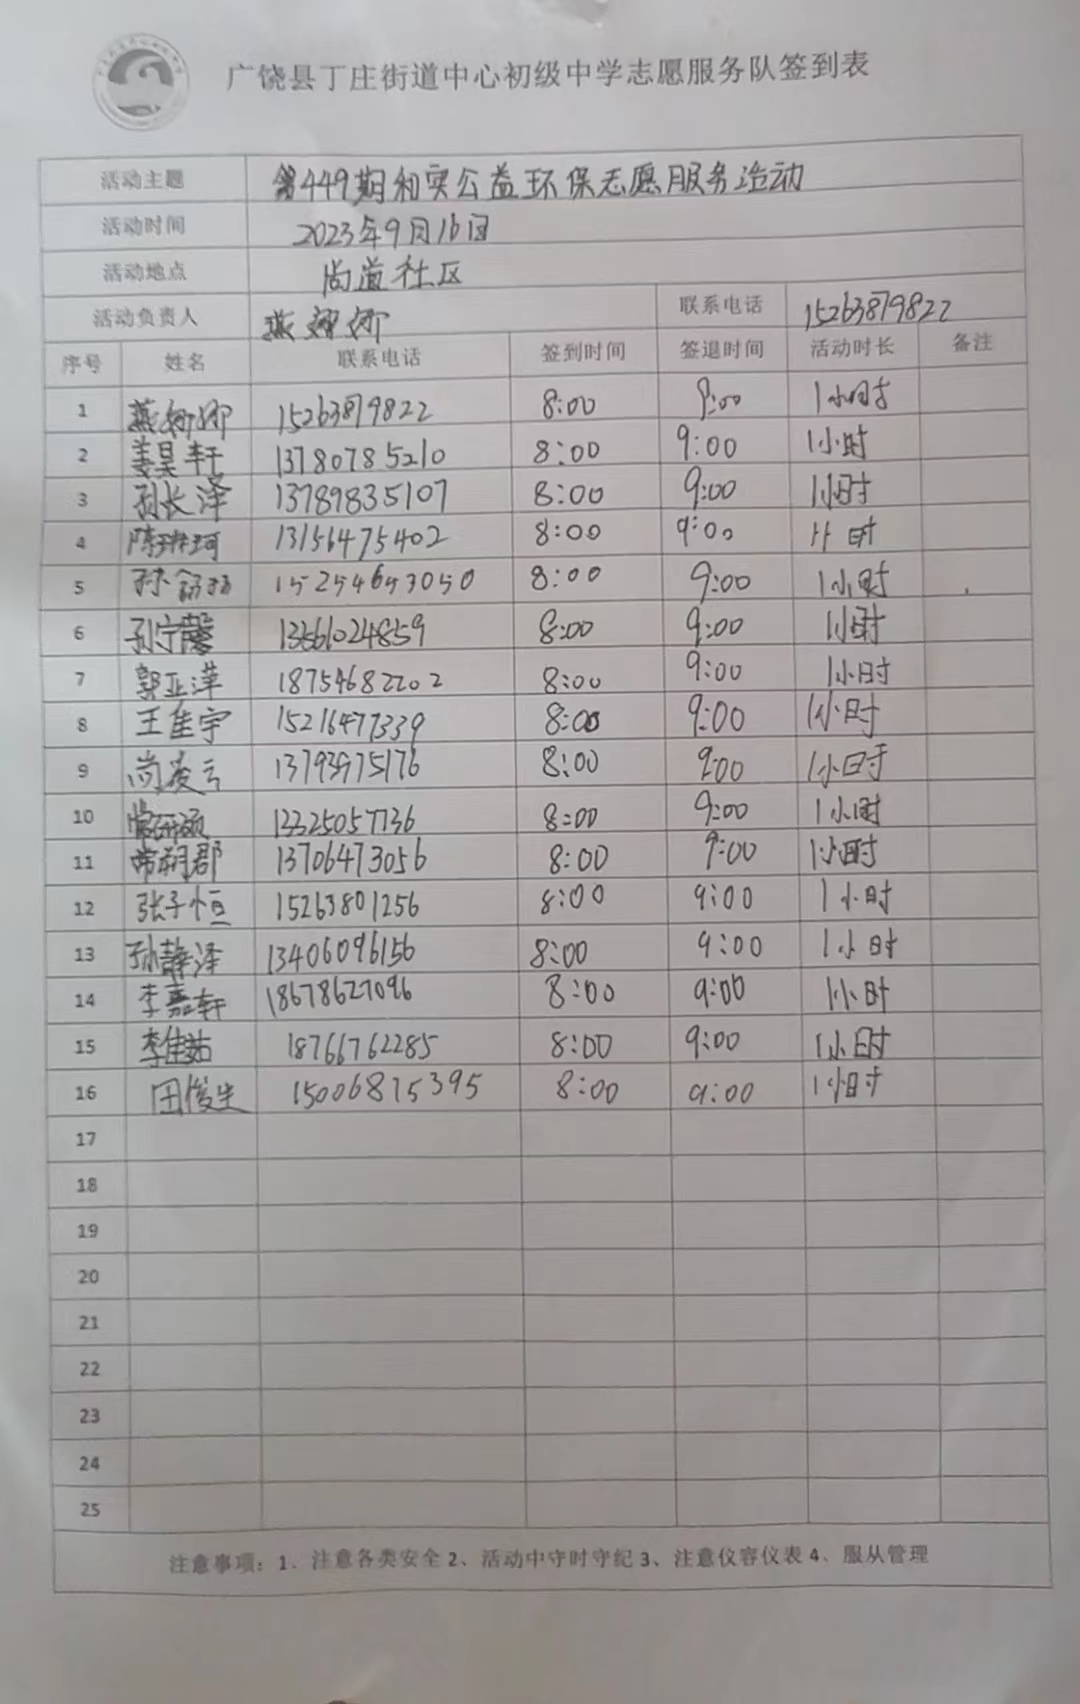 广饶县丁庄街道中心初级中学志愿服务队签到表
活动主题 第449期和实公益环保志愿服务活动
活动时间 2023年9月16日
活动地点 尚道社区
活动负责人 燕娜娜 联系电话 15263879822
序号 姓名 联系电话 签到时间 签退时间 活动时长 备注
1 燕娜娜 15263879822 8:00 9:00 1小时
2 姜昊轩 13780785210 8:00 9:00 1小时
3 孙长泽 13789835107 8:00 9:00 1小时
4 13156475402 8:00 9:00 1小时
5 15254653050 8:00 9:00 1小时
6 孙宁馨 13561024859 8:00 9:00 1小时
7 郭亚萍 18754682202 8:00 9:00 1小时
8 王佳宇 15216477339 8:00 9:00 1小时
9 尚凌云 13793975176 8:00 9:00 1小时
10 常研硕 13325057736 8:00 9:00 1小时
11 常朝郡 13706473056 8:00 9:00 1小时
12 张子恒 15263801256 8:00 9:00 1小时
13 孙静泽 13406096156 8:00 9:00 1小时
14 李嘉轩 18678627096 8:00 9:00 1小时
15 李佳茹 18766762285 8:00 9:00 1小时
16 田俊生 15006815395 8:00 9:00 1小时
17
18
19
20
21
22
23
24
25
注意事项：1、注意各类安全 2、活动中守时守纪 3、注意仪容仪表 4、服从管理